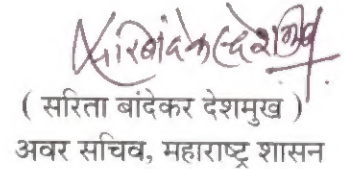 ( सरिता बांदेकर देशमुख )
अवर सचिव, महाराष्ट्र शासन